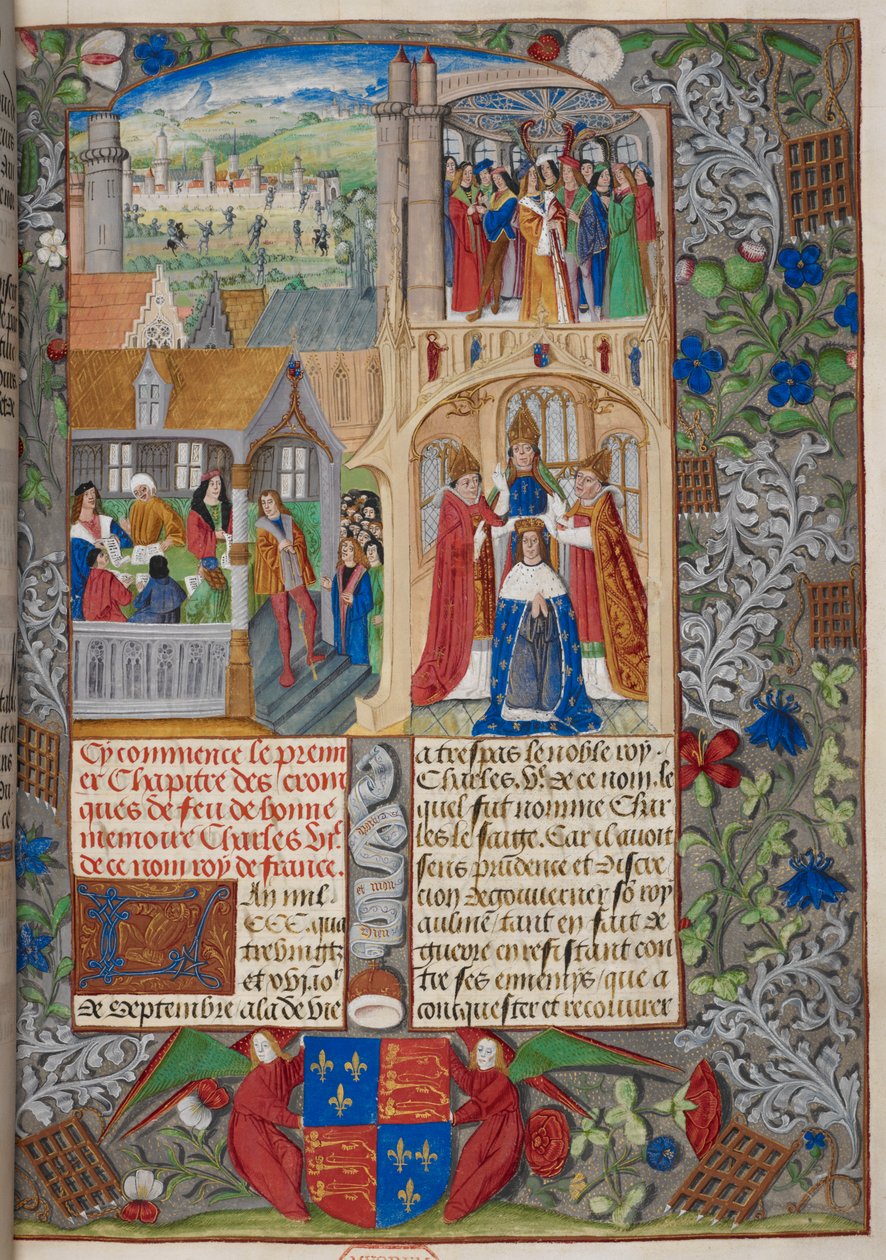 Cy commence le premi
er Chapitre des croni
ques de feu de bonne
memoire Charles vi.
de ce nom roy de france.
An mil.
CCC. qua
tre vingtz
et xvi. io.
de Septembre a la de vie
et mon
a trespas le noble roy.
Charles. v. de ce nom. le
quel fut nomme Char
les le saige. Car il avoit
sens prudence et discre
cion de gouverner so roy
aulme / tant en fait de
guerre en resistant con
tre ses ennemys / que a
conquester et recouvrer